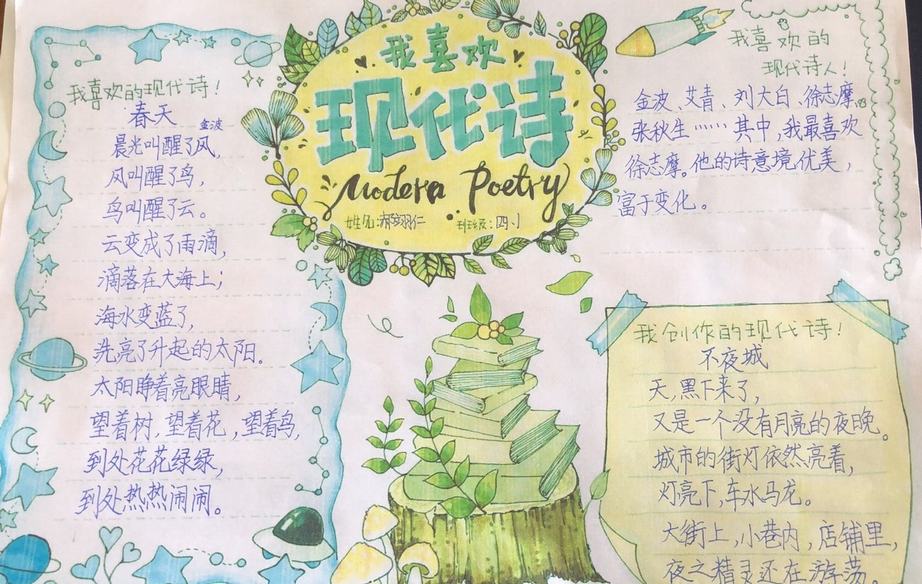 我喜欢
现代诗
Modern Poetry
姓名: 班级:四.1
我喜欢的现代诗!
春天
金波
晨光叫醒了风,
风叫醒了鸟,
鸟叫醒了云。
云变成了雨滴,
滴落在大海上;
海水变蓝了,
洗亮了升起的太阳。
太阳睁着亮眼睛,
望着树,望着花,望着鸟,
到处花花绿绿,
到处热热闹闹。
我喜欢的
现代诗人!
金波、艾青、刘大白、徐志摩、
张秋生……其中,我最喜欢
徐志摩。他的诗意境优美,
富于变化。
我创作的现代诗!
不夜城
天,黑下来了,
又是一个没有月亮的夜晚。
城市的街灯依然亮着,
灯亮下,车水马龙。
大街上,小巷内,店铺里,
夜之精灵还在游荡